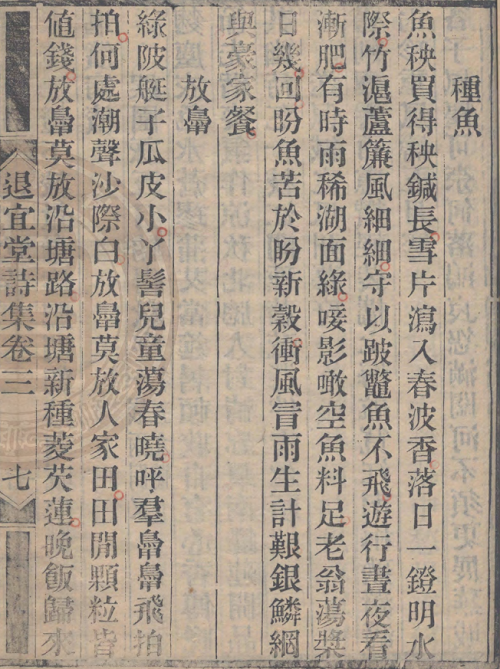 種魚
魚秧買得秧鍼長雪片瀉入春波香落日一鐙明水
際竹滬蘆簾風細細守以跛鼈魚不飛遊行晝夜看
漸肥有時雨稀湖面綠唼影噉空魚料足老翁蕩槳
日幾回盼魚苦於盼新穀衝風冒雨生計艱銀鱗網
與豪家餐
放鳧
綠陂艇子瓜皮小丫髻兒童蕩春曉呼羣鳧鳧飛拍
拍何處潮聲沙際白放鳧莫放人家田田閒顆粒皆
值錢放鳧莫放沿塘路沿塘新種菱芡蓮晚飯歸來
退宜堂詩集卷三
七